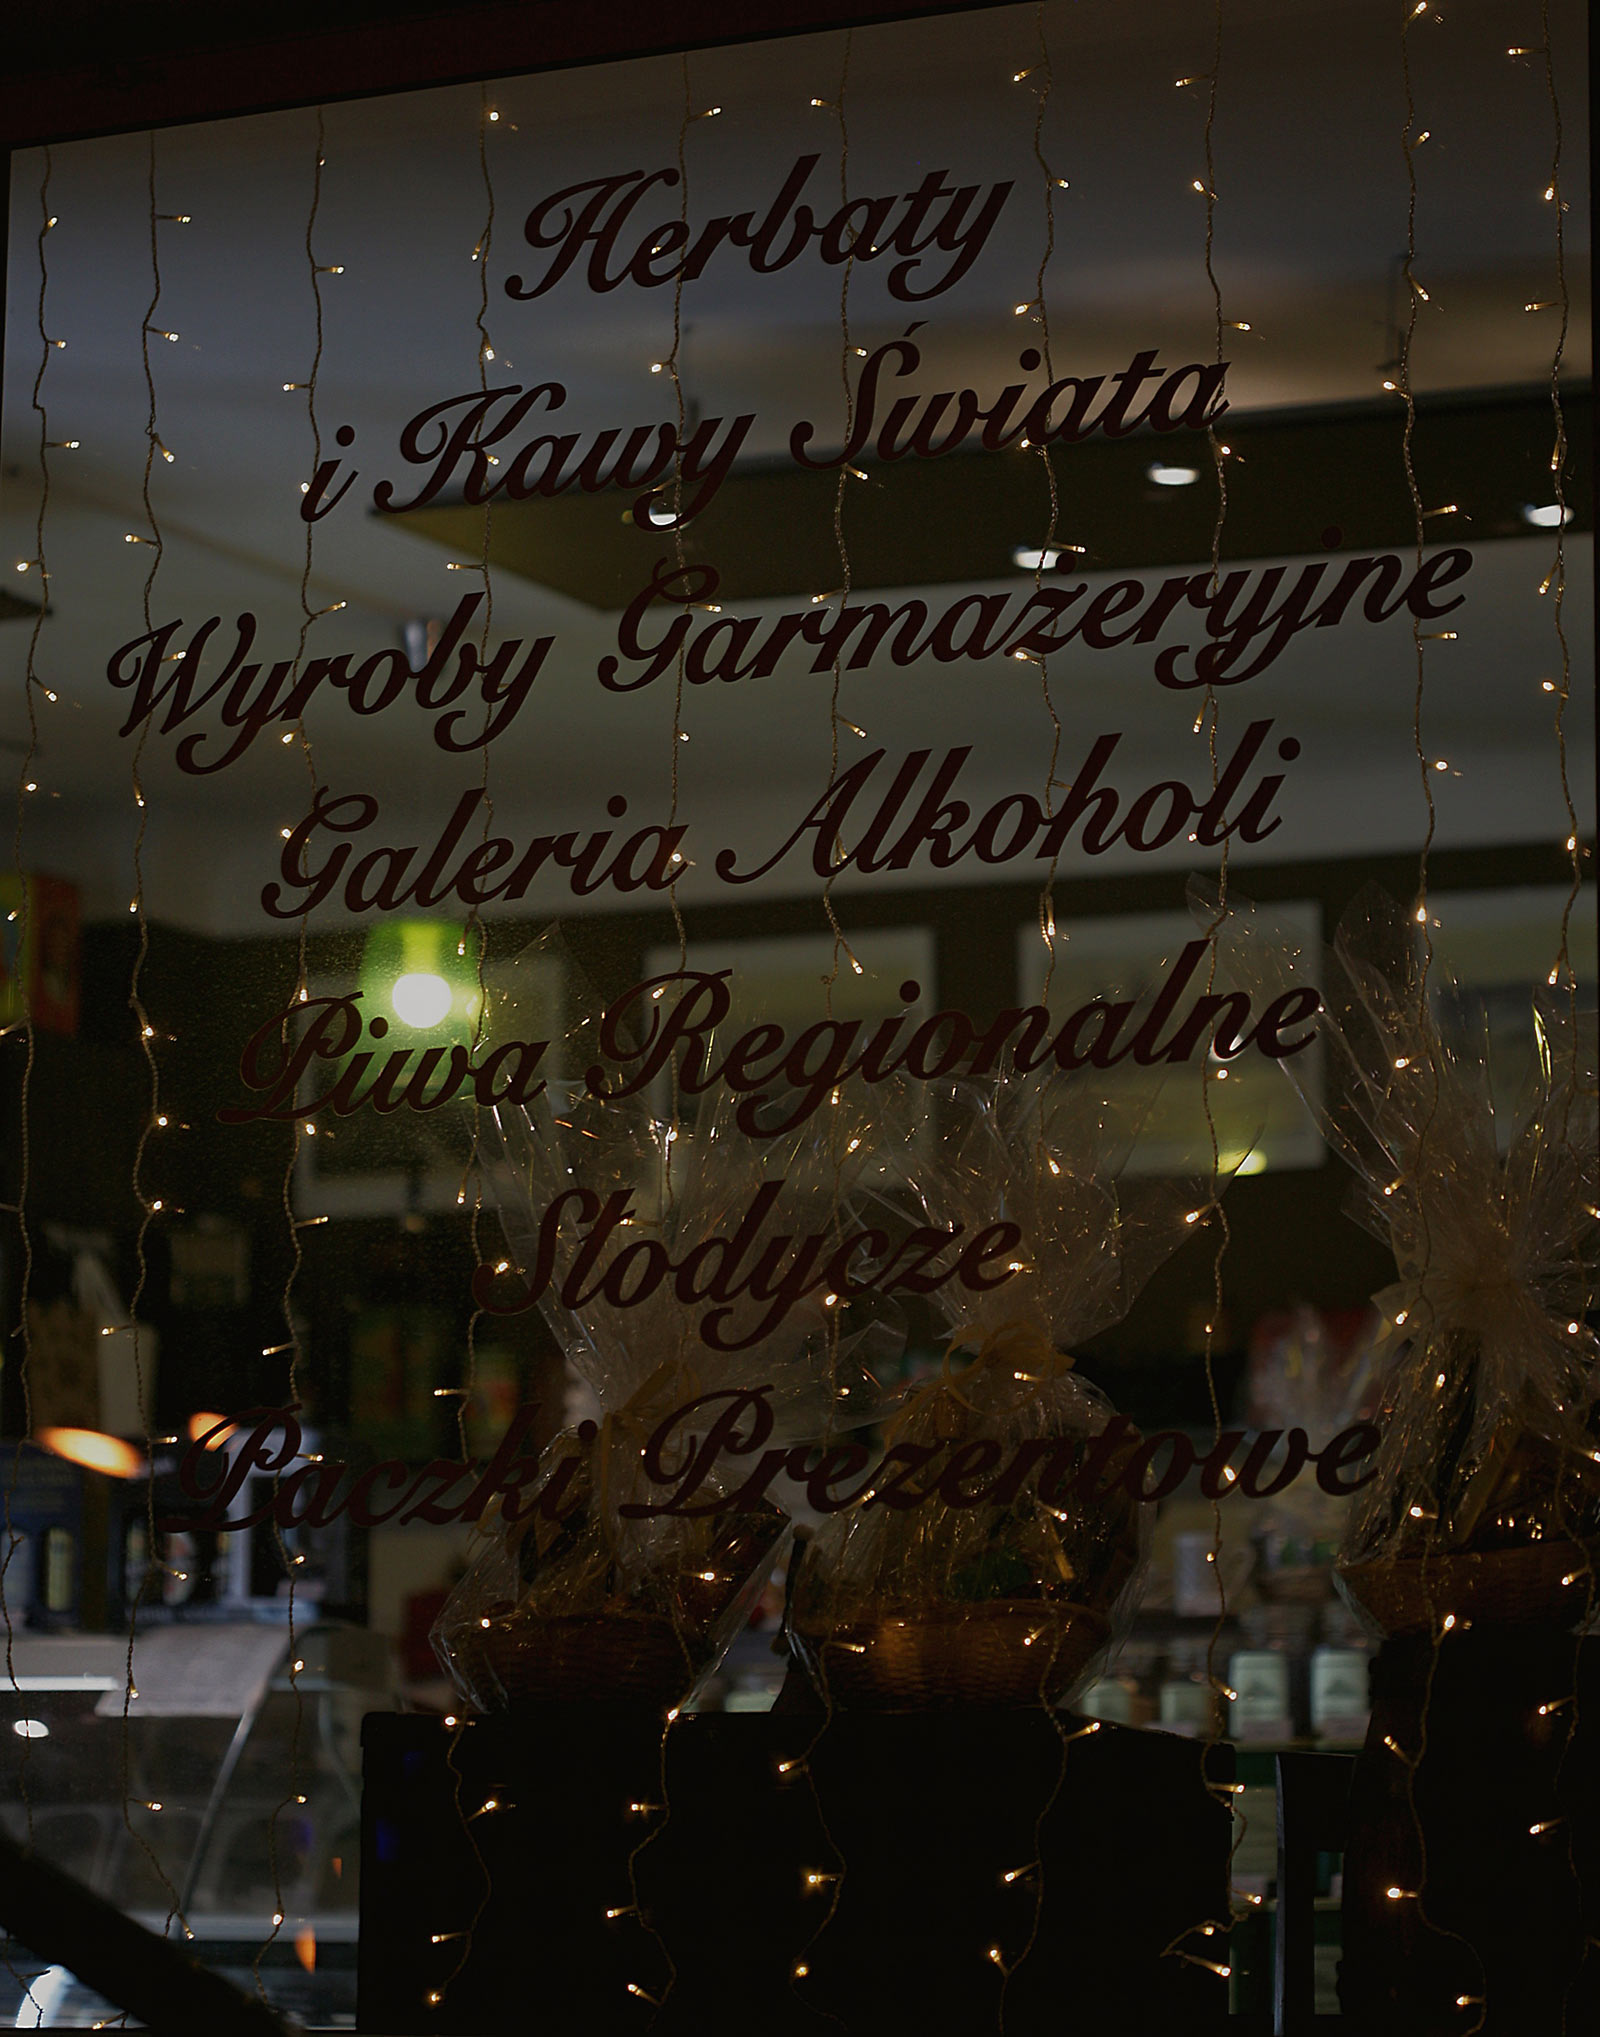 Herbaty
i Kawy Świata
Wyroby Garmażeryjne
Galeria Alkoholi
Piwa Regionalne
Słodycze
Paczki Prezentowe